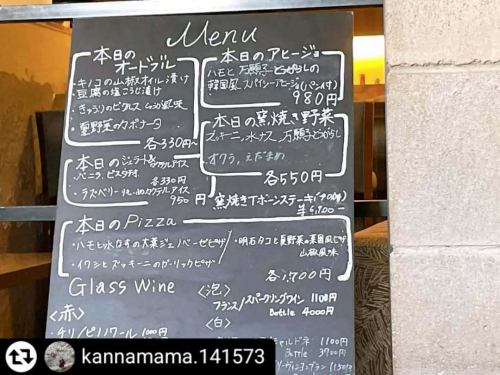 Menu
本日の
オードブル
・キノコの山椒オイル漬け
・豆腐の塩こうじ漬け
・きゅうりのピクルス しょうゆ風味
・夏野菜のカポナータ
各330円~
本日のアヒージョ
ハモと万願寺とうがらしの
韓国風 スパイシーアヒージョ(パン付)
980円
本日の窯焼き野菜
ズッキーニ, 水ナス, 万願寺とうがらし
オクラ, えだまめ
各550円
本日のジェラート&
カクテルアイス
バニラ, ピスタチオ
各330円
ラズベリー カクテルアイス
950円
窯焼きTボーンステーキ
¥6,900-
本日のPizza
・ハモと水なすの大葉ジェノベーゼピザ
・イワシとズッキーニのガーリックピザ
・明石タコと夏野菜の菜園風ピザ
山椒風味
各1,700円
Glass Wine
<赤>
・チリ/ピノノワール 1000円
<泡>
フランス/スパークリングワイン 1100円
Bottle 4000円
<白>
シャルドネ 1100円
Bottle 3900円
ソーヴィニヨンブラン
kannamama.141573